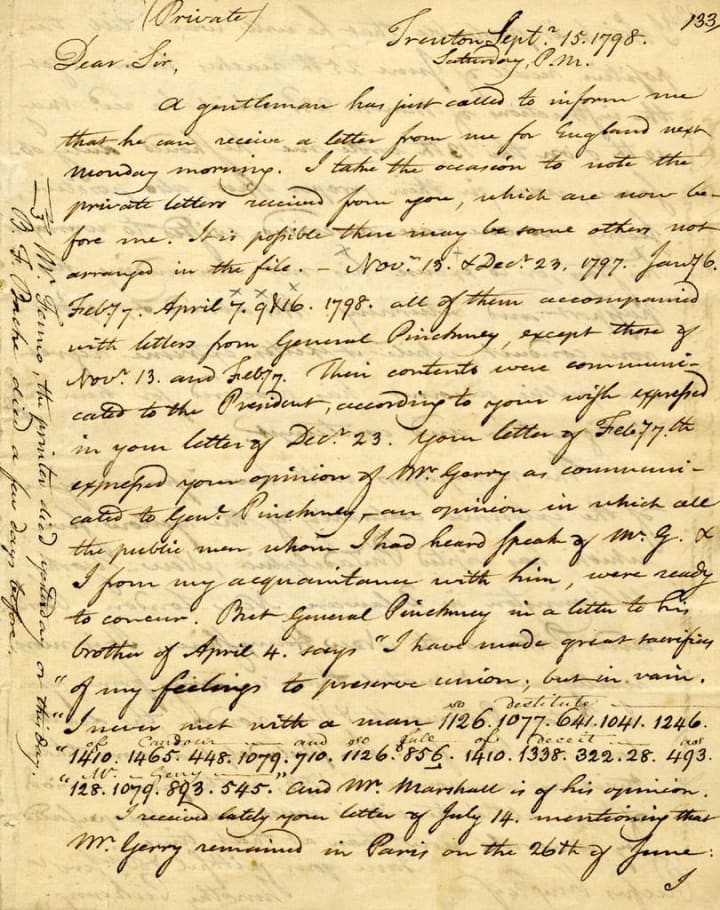 (Private)
133
Trenton Septr. 15. 1798.
Saturday, P.M.
Dear Sir,
A gentleman has just called to inform me
that he can receive a letter from me for England next
monday morning. I take the occasion to note the
private letters received from you, which are now be-
fore me. It is possible there may be some others not
arranged in the file. — Novr. 13. & Decr. 23. 1797. Jany 6.
Feby 7. April 7. 9 & 16. 1798. all of them accompanied
with letters from General Pinckney, except those of
Novr. 13. and Feby 7. Their contents were communi-
cated to the President, according to your wish expressed
in your letter of Decr. 23. Your letter of Feby 7.th
expressed your opinion of Mr. Gerry as communi-
cated to Genl. Pinckney,—an opinion in which all
the public men whom I had heard speak of Mr. G. &
I from my acquaintance with him, were ready
to concur. But General Pinckney in a letter to his
brother of April 4. says "I have made great sacrifices
"of my feelings to preserve union; but in vain.
so destitute
"I never met with a man 1126. 1077. 641. 1041. 1246.
of Candour and so full of deceit as
"1410. 1465. 448. 1079. 710. 1126. 856. 1410. 1338. 322. 28. 493.
Mr. Gerry
"128. 1079. 893. 545." and Mr. Marshall is of his opinion.
I received lately your letter of July 14. mentioning that
Mr. Gerry remained in Paris on the 26th of June:
I
Mr. Fenno, the printer died yesterday or this day.
B. F. Bache died a few days before.